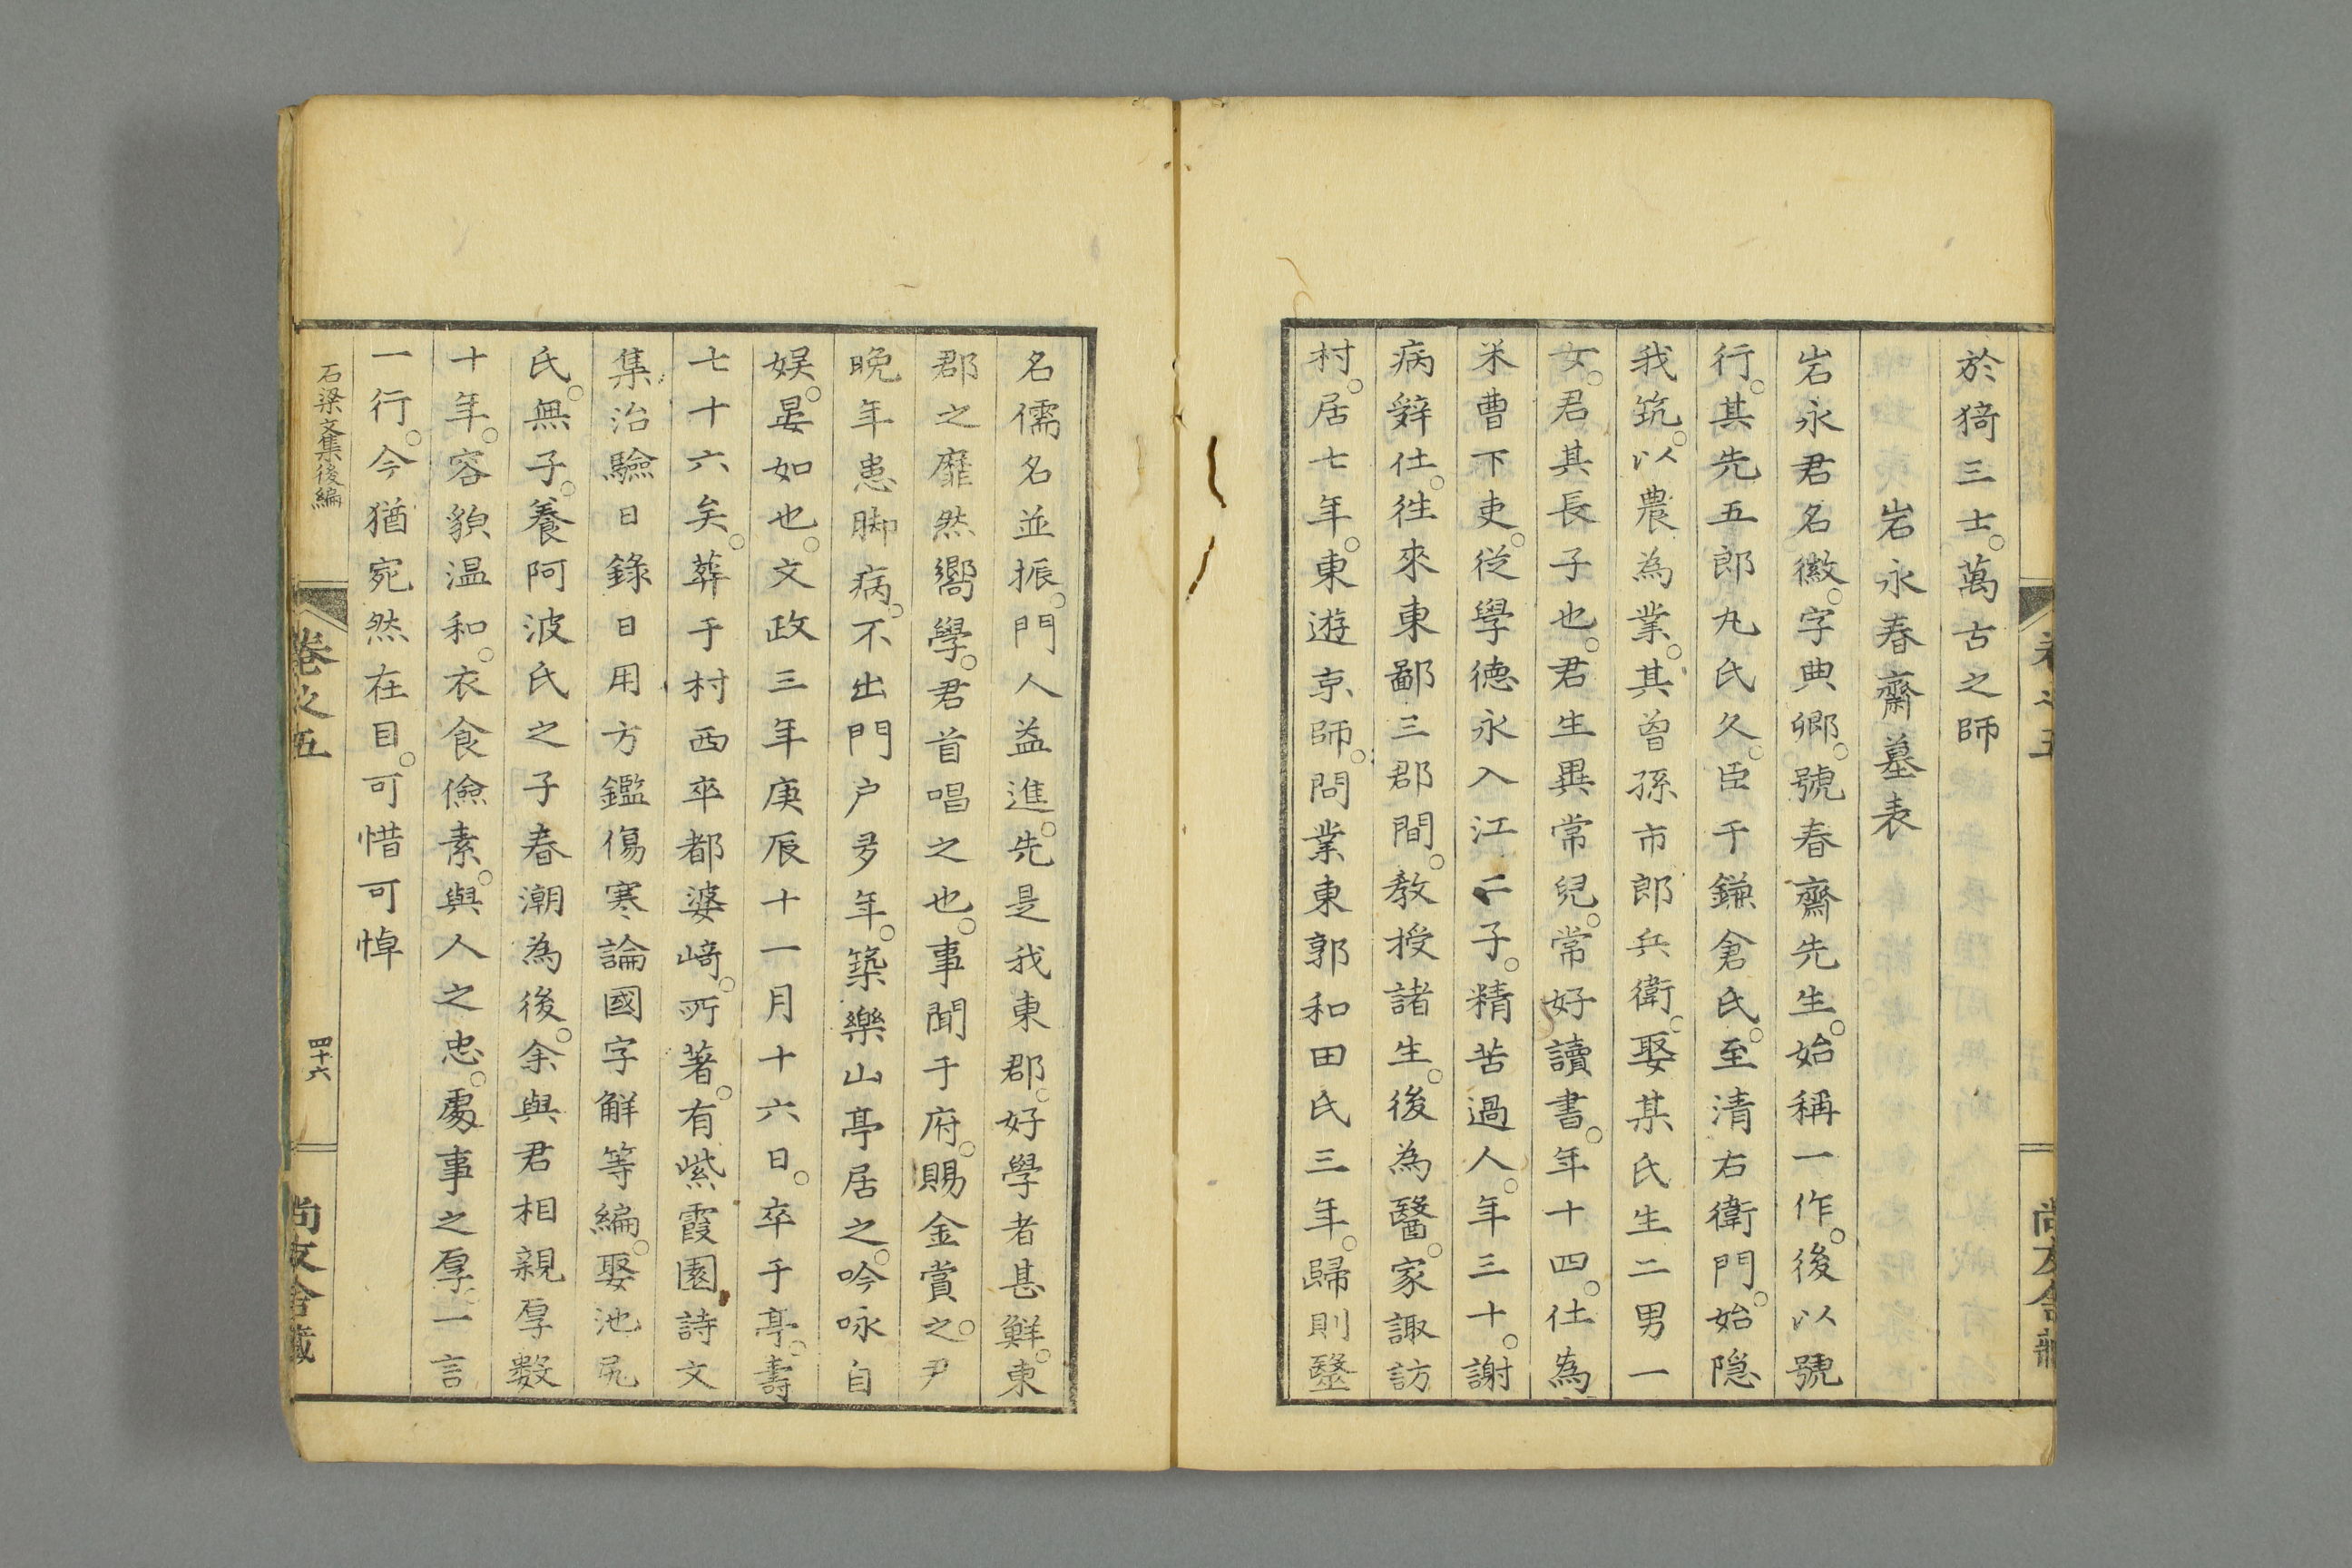 於猗三士。萬古之師
岩永春齋墓表
岩永君名徽。字典卿。號春齋先生。始稱一作。後以號
行。其先五郎丸氏久。臣于鎌倉氏。至清右衛門。始隠
我筑。以農為業。其曾孫市郎兵衛。娶某氏生二男一
女。君其長子也。君生異常兒。常好讀書。年十四。仕為
米曹下吏。從學德永入江二子。精苦過人。年三十。謝
病辤仕。往來東鄙三郡間。教授諸生。後為醫。家諏訪
村。居七年。東遊京師。問業東郭和田氏三年。歸則毉
名儒名並振。門人益進。先是我東郡。好學者甚鮮。東
郡之靡然嚮學。君首唱之也。事聞于府。賜金賞之。尹
晚年患脚病。不出門户多年。築樂山亭居之。吟咏自
娱。晏如也。文政三年庚辰十一月十六日。卒于亭。壽
七十六矣。葬于村西卒都婆﨑。所著。有紫霞園詩文
集治驗日錄日用方鑑傷寒論國字解等編。娶池尻
氏。無子。養阿波氏之子春潮為後。余與君相親厚数
十年。容貌温和。衣食儉素。與人之忠。處事之厚一言
一行。今猶宛然在目。可惜可悼
石梁文集後編
卷之五
四十六
尚友舎藏